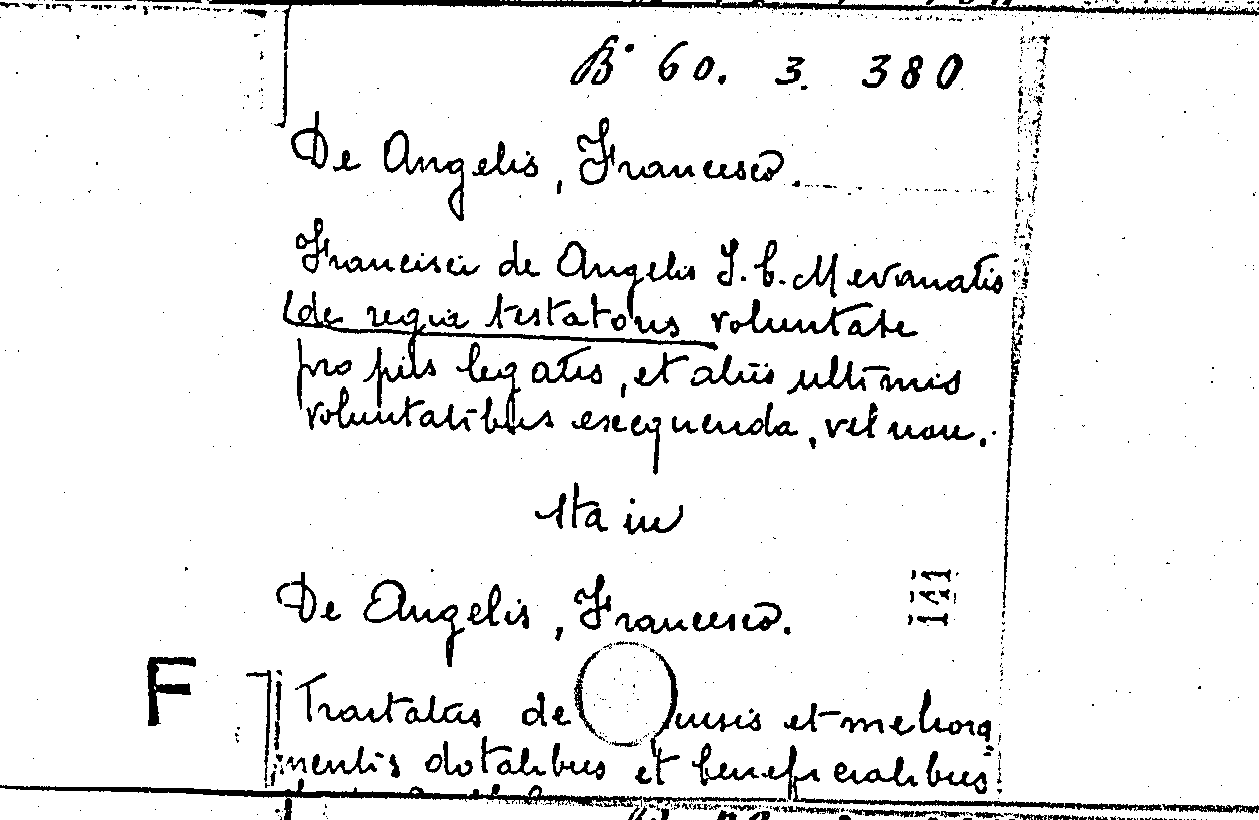 B· 60. 3. 380
De Angelis, Francesco.
Francisci de Angelis I. C. Mevanatis
(de regia testatoris voluntate
pro piis legatis, et aliis ultimis
voluntatibus exequenda, vel non.
Sta in
De Angelis, Francesco.
F
Tractatus de et meliora
mentis dotalibus et beneficialibus